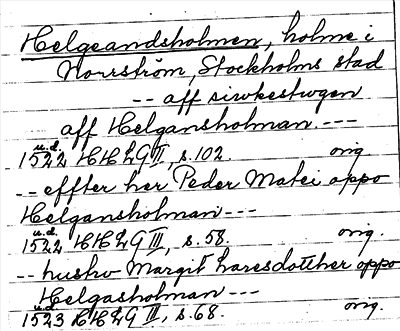 Helgeandsholmen, holme i
Norrström, Stockholms stad
-- aff siwkestwgen
aff Helgansholman. ---
u.d.
1522 HHLG II, s. 102. orig
-- effter her Peder Matei oppo
Helgansholman ---
u.d.
1522 HHLG III, s. 58. orig.
-- husho Margit haresdotther oppo
Helgasholman ---
u.d.
1523 HHLG III, s. 68. orig.